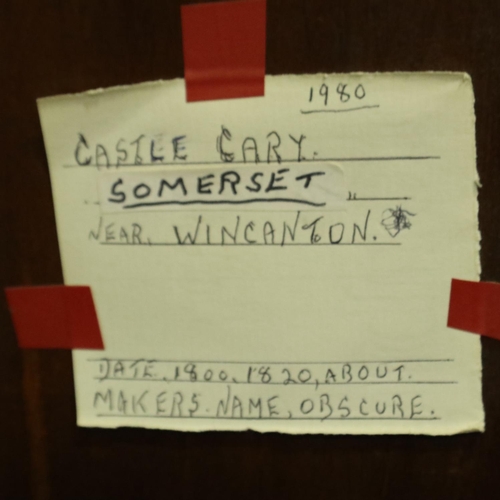 1980
CASTLE CARY.
SOMERSET "
NEAR. WINCANTON.
DATE, 1800, 1820, ABOUT.
MAKERS. NAME, OBSCURE.